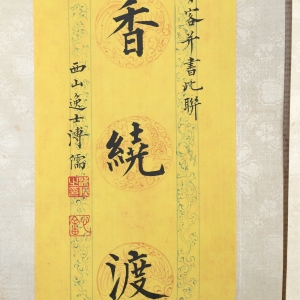 容并書此聯
香繞渡
西山逸士溥儒